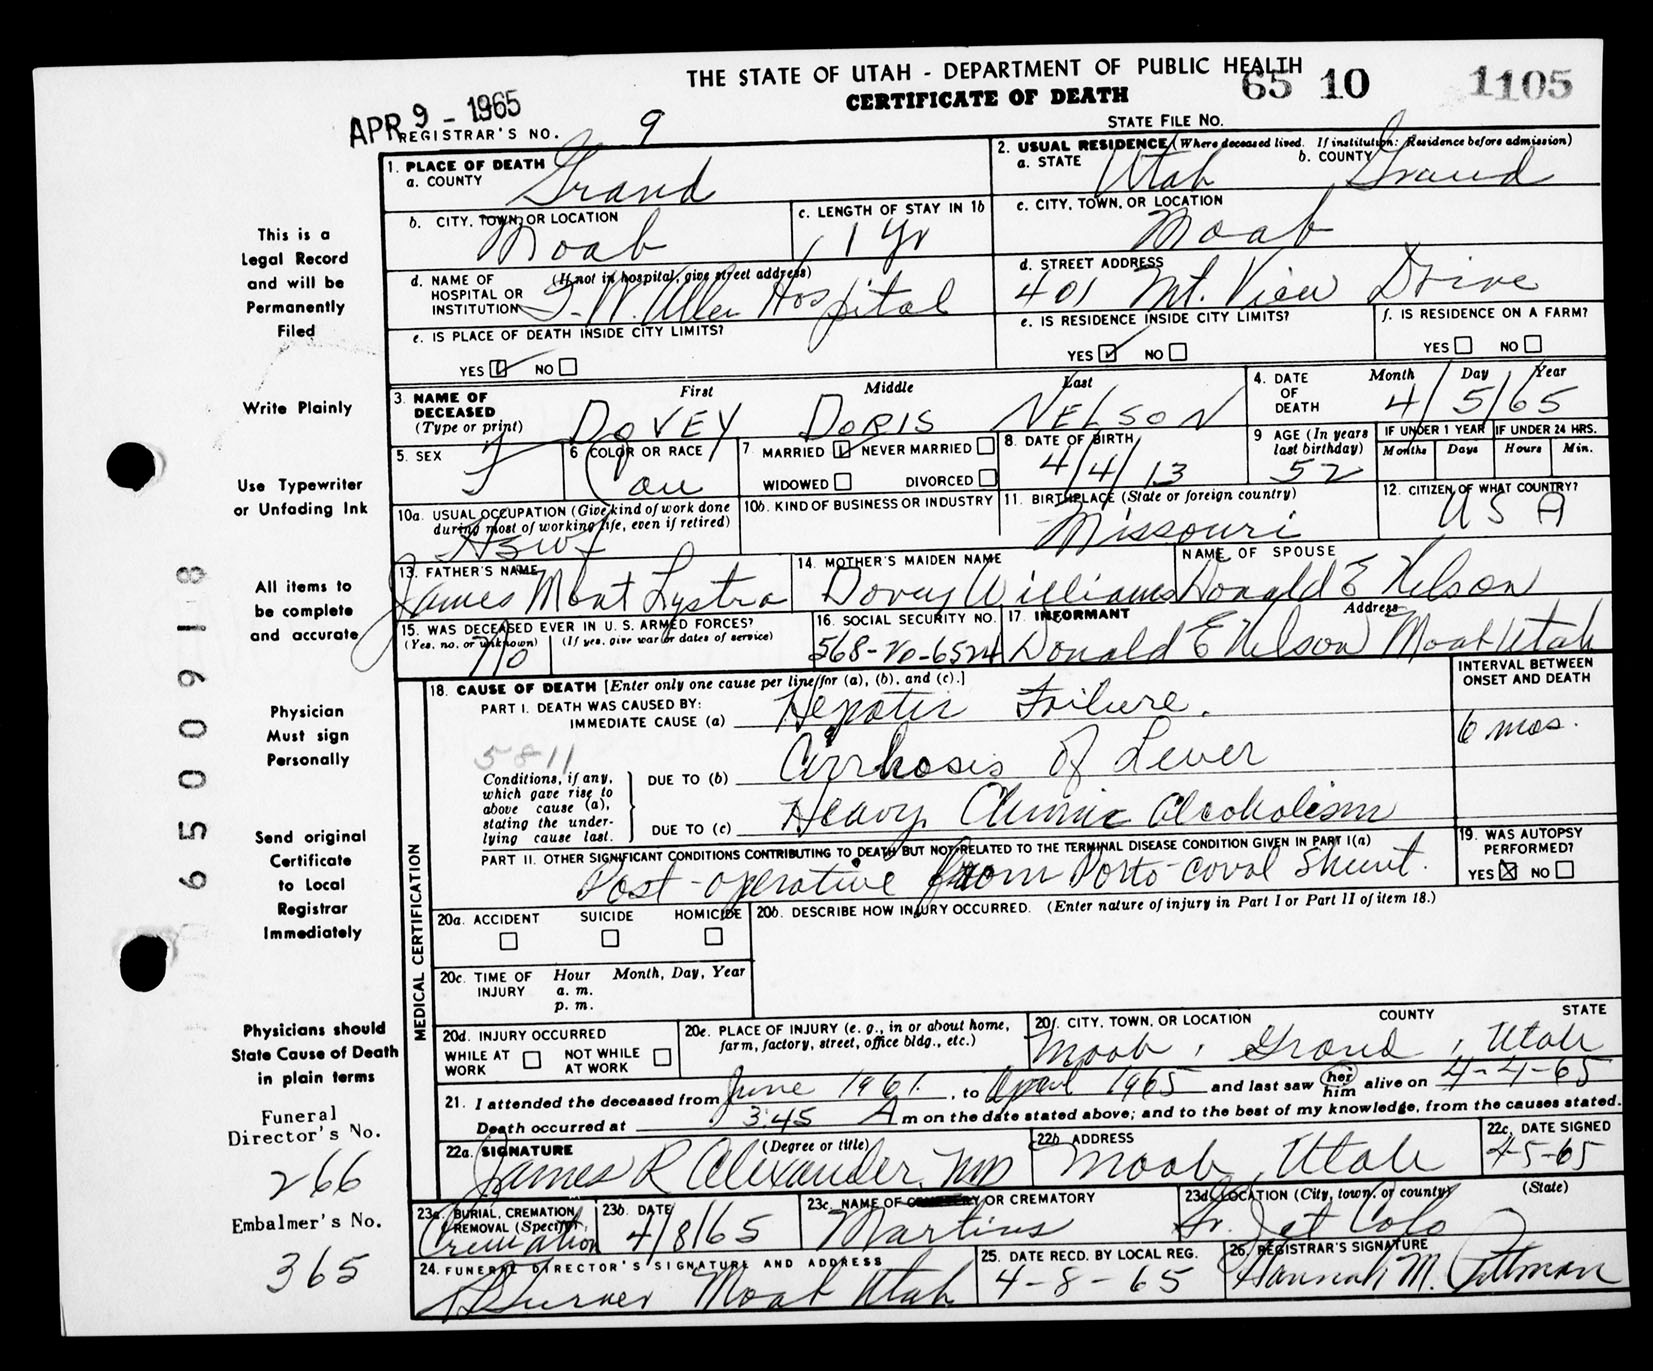 THE STATE OF UTAH - DEPARTMENT OF PUBLIC HEALTH
CERTIFICATE OF DEATH
65 10 1105
APR 9 - 1965
REGISTRAR'S NO. 9
STATE FILE NO.
1. PLACE OF DEATH
a. COUNTY Grand
2. USUAL RESIDENCE (Where deceased lived. If institution: Residence before admission)
a. STATE Utah b. COUNTY Grand
b. CITY, TOWN, OR LOCATION Moab
c. LENGTH OF STAY IN 1b 1 yr
c. CITY, TOWN, OR LOCATION Moab
d. NAME OF HOSPITAL OR INSTITUTION (If not in hospital, give street address) Allen Hospital
d. STREET ADDRESS 401 Mt. View Drive
e. IS PLACE OF DEATH INSIDE CITY LIMITS?
YES NO
e. IS RESIDENCE INSIDE CITY LIMITS?
YES NO
f. IS RESIDENCE ON A FARM?
YES NO
3. NAME OF DECEASED (Type or print)
First Middle Last
DOVEY DORIS NELSON
4. DATE OF DEATH
Month Day Year
4/5/65
5. SEX F
6 COLOR OR RACE Cau
7 MARRIED NEVER MARRIED
WIDOWED DIVORCED
8. DATE OF BIRTH 4/4/13
9 AGE (In years last birthday) 52
IF UNDER 1 YEAR IF UNDER 24 HRS.
Months Days Hours Min.
10a. USUAL OCCUPATION (Give kind of work done during most of working life, even if retired) Hswf
10b. KIND OF BUSINESS OR INDUSTRY
11. BIRTHPLACE (State or foreign country) Missouri
12. CITIZEN OF WHAT COUNTRY? USA
13. FATHER'S NAME James Mont Lystra
14. MOTHER'S MAIDEN NAME Dovey Williams
NAME OF SPOUSE Donald E Nelson
15. WAS DECEASED EVER IN U. S. ARMED FORCES?
(Yes, no. or unknown) (If yes, give war or dates of service)
no
16. SOCIAL SECURITY NO.
17. INFORMANT Address
Donald E Nelson Moab Utah
MEDICAL CERTIFICATION
18. CAUSE OF DEATH [Enter only one cause per line for (a), (b), and (c).]
INTERVAL BETWEEN ONSET AND DEATH
PART I. DEATH WAS CAUSED BY:
IMMEDIATE CAUSE (a) Hepatic Failure.
6 mos.
5811
Conditions, if any, which gave rise to above cause (a), stating the underlying cause last.
DUE TO (b) Cirrhosis of Liver
DUE TO (c) Heavy Chronic Alcoholism
PART II. OTHER SIGNIFICANT CONDITIONS CONTRIBUTING TO DEATH BUT NOT RELATED TO THE TERMINAL DISEASE CONDITION GIVEN IN PART I(a)
Post-operative from Porto-caval Shunt.
19. WAS AUTOPSY PERFORMED?
YES NO
20a. ACCIDENT SUICIDE HOMICIDE
20b. DESCRIBE HOW INJURY OCCURRED. (Enter nature of injury in Part I or Part II of item 18.)
20c. TIME OF INJURY Hour Month, Day, Year
a. m.
p. m.
20d. INJURY OCCURRED
WHILE AT WORK NOT WHILE AT WORK
20e. PLACE OF INJURY (e. g., in or about home, farm, factory, street, office bldg., etc.)
20f. CITY, TOWN, OR LOCATION COUNTY STATE
Moab, Grand, Utah
21. I attended the deceased from June 1961, to April 1965 and last saw her him alive on 4-4-65
Death occurred at 3:45 A m on the date stated above; and to the best of my knowledge, from the causes stated.
22a. SIGNATURE (Degree or title)
James R Alexander, MD
22b. ADDRESS Moab, Utah
22c. DATE SIGNED 4-5-65
23a. BURIAL, CREMATION REMOVAL (Specify) Cremation
23b. DATE 4/8/65
23c. NAME OF CEMETERY OR CREMATORY Martins
23d. LOCATION (City, town, or county) (State)
Gr. Jct Colo
24. FUNERAL DIRECTOR'S SIGNATURE AND ADDRESS
Moab Utah
25. DATE RECD. BY LOCAL REG. 4-8-65
26. REGISTRAR'S SIGNATURE
Hannah M. Pittman
This is a
Legal Record
and will be
Permanently
Filed
Write Plainly
Use Typewriter
or Unfading Ink
All items to
be complete
and accurate
Physician
Must sign
Personally
Send original
Certificate
to Local
Registrar
Immediately
Physicians should
State Cause of Death
in plain terms
Funeral
Director's No.
266
Embalmer's No.
365
6500918